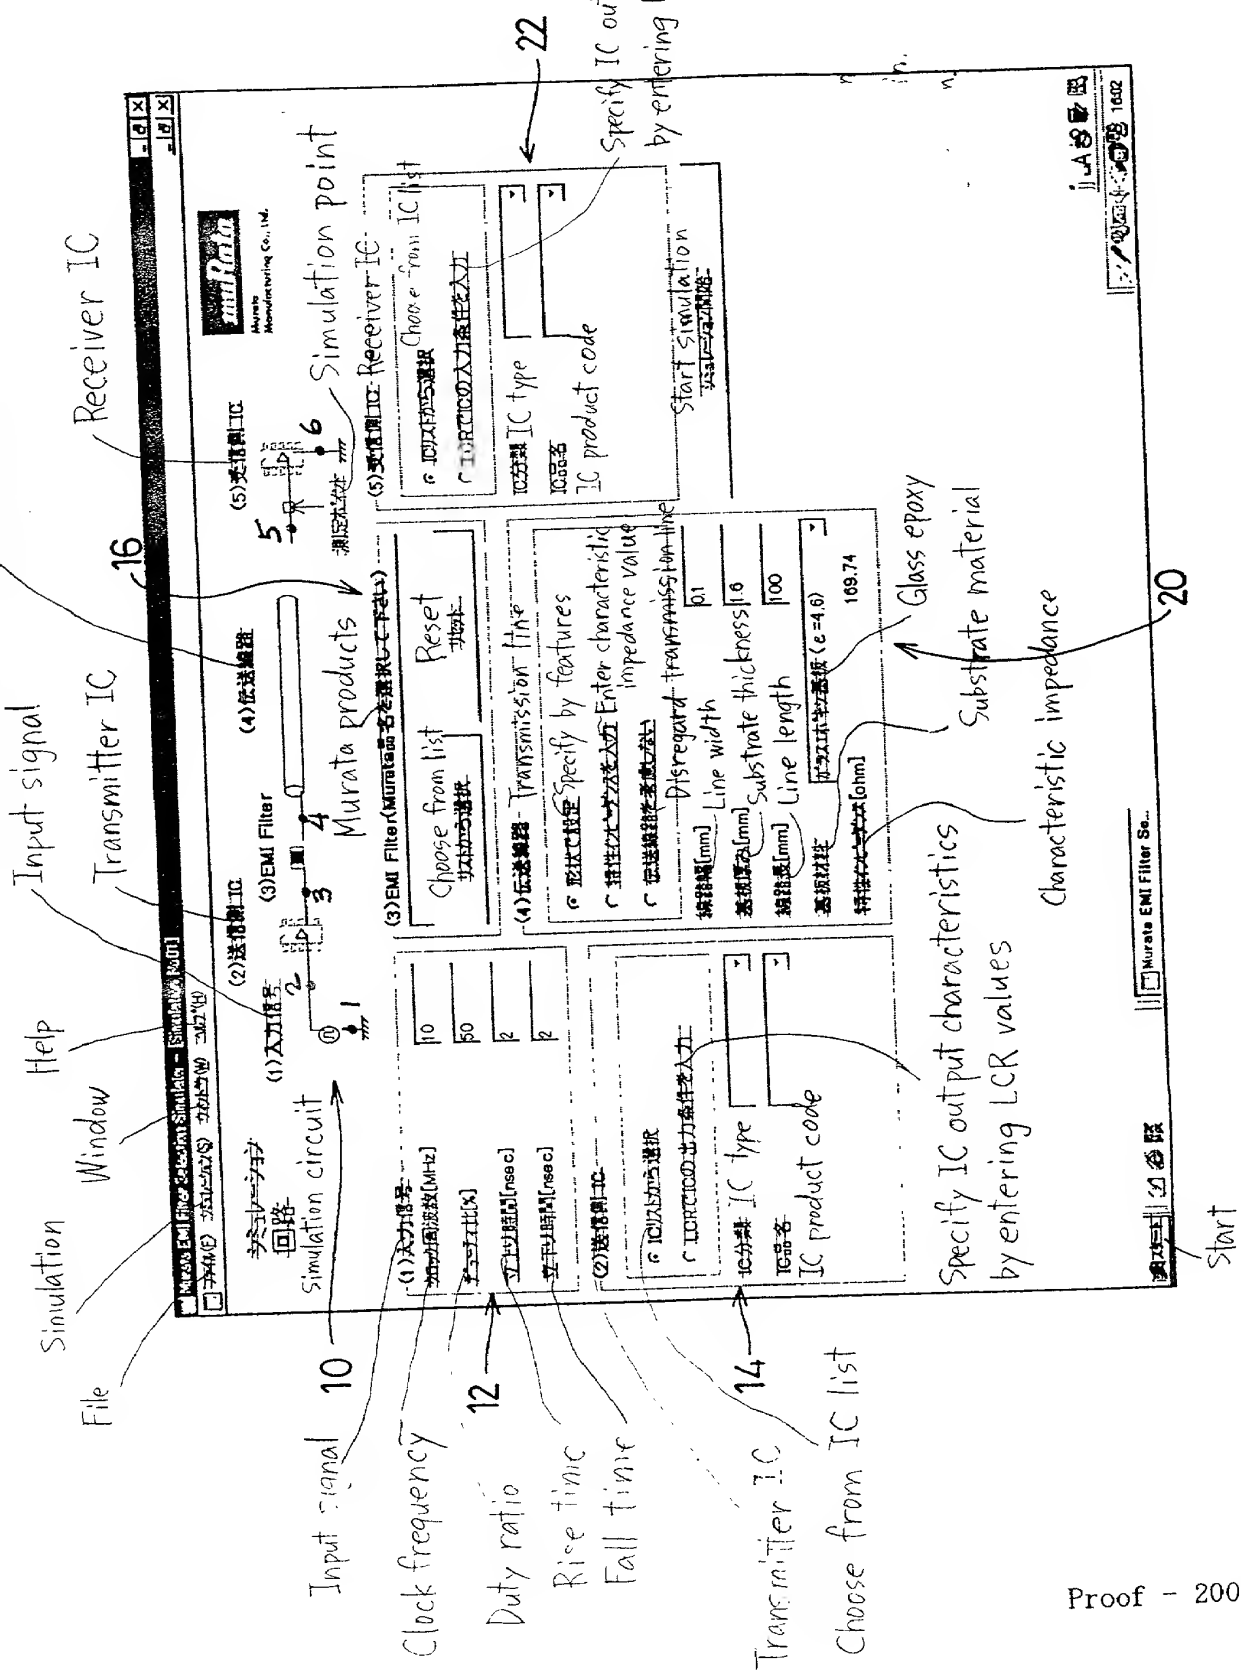 File
Simulation
Window
Help
Input signal
Transmitter IC
Receiver IC
Murata EMI Filter Selection Simulator - [Simulation No01]
ファイル(F) シミュレーション(S) ウィンドウ(W) ヘルプ(H)
シミュレーション
回路
Simulation circuit
10
(1)入力信号
(2)送信側 IC
(3)EMI Filter
(4)伝送線路
(5)受信側 IC
1
2
3
4
5
6
測定ポイント
Simulation point
muRata
Murata
Manufacturing Co., Ltd.
16
Murata products
Input signal
(1)入力信号
Clock frequency
クロック周波数[MHz] 10
Duty ratio
デューティ比[%] 50
12
Rise time
立上り時間[nsec] 2
Fall time
立下り時間[nsec] 2
Transmitter IC
(2)送信側 IC
Choose from IC list
ICリストから選択
LCRでICの出力条件を入力
14
IC分類 IC type
IC品名
IC product code
Specify IC output characteristics
by entering LCR values
(3)EMI Filter(Murata品名を選択して下さい)
Choose from list
リストから選択
Reset
リセット
(4)伝送線路 Transmission line
形状で設定 Specify by features
特性インピーダンスを入力 Enter characteristic
impedance value
伝送線路を考慮しない
Disregard transmission line
線路幅[mm] Line width 0.1
基板厚み[mm] Substrate thickness 1.6
線路長[mm] Line length 100
基板材料 ガラスエポキシ基板 (ε=4.6)
特性インピーダンス[ohm] 169.74
Glass epoxy
Substrate material
Characteristic impedance
20
(5)受信側 IC Receiver IC
ICリストから選択 Choose from IC list
LCRでICの入力条件を入力
IC分類 IC type
IC品名
IC product code
22
Specify IC out
by entering
Start simulation
シミュレーション開始
スタート
Start
Murata EMI Filter Se...
16:02
Proof - 200